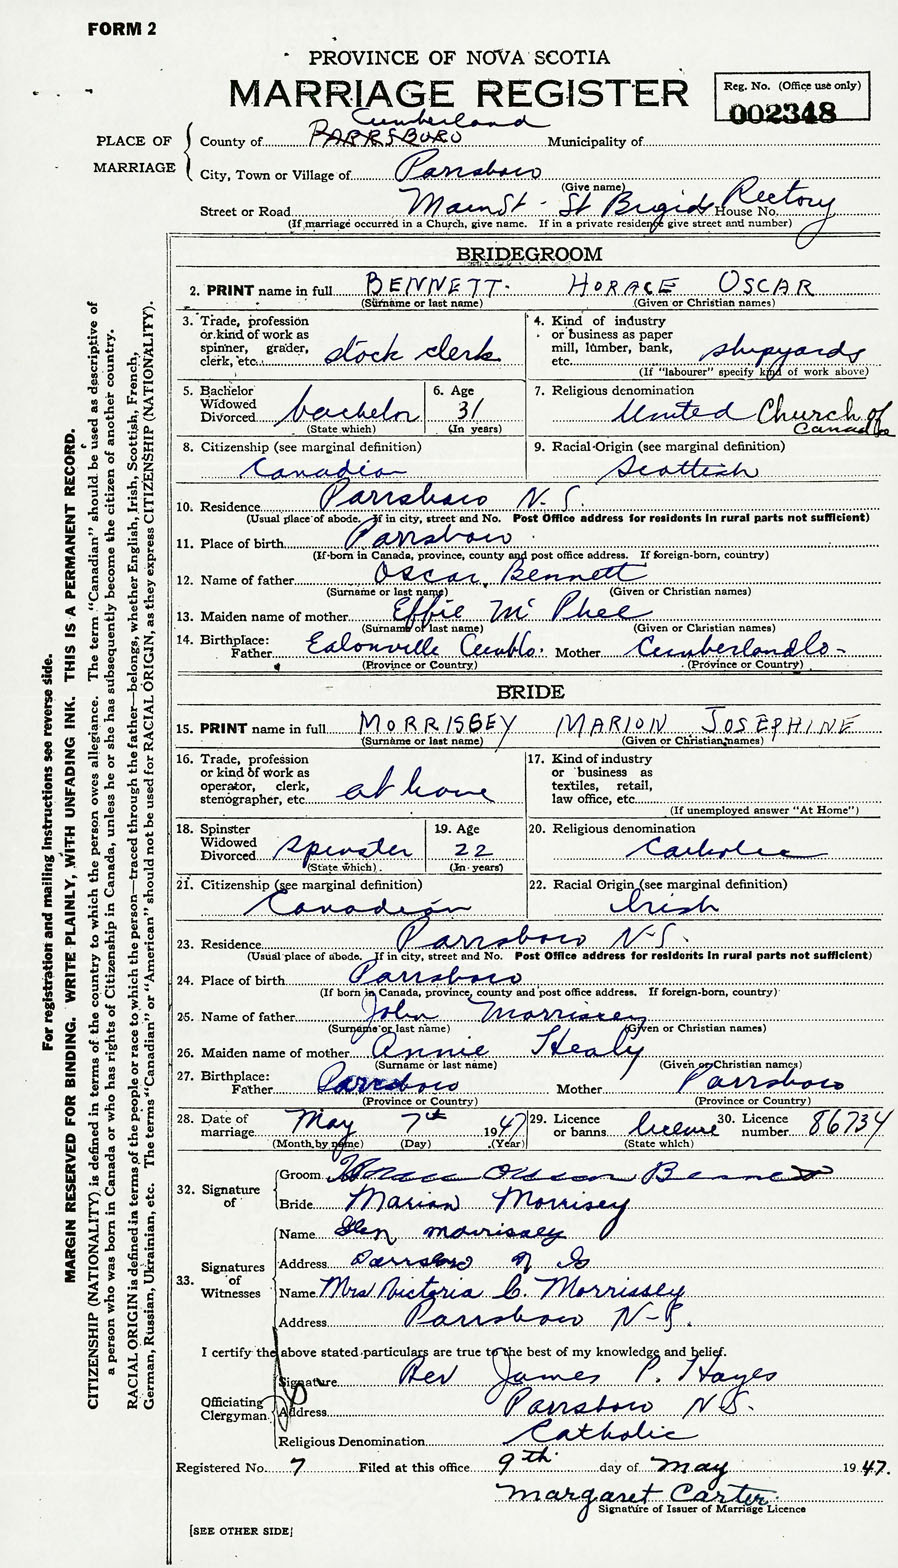 FORM 2
PROVINCE OF NOVA SCOTIA
MARRIAGE REGISTER
Reg. No. (Office use only)
002348
PLACE OF MARRIAGE
Cumberland
County of PARRSBORO Municipality of
City, Town or Village of Parrsboro
(Give name)
Street or Road Main St - St Brigids Rectory House No.
(If marriage occurred in a Church, give name. If in a private residence give street and number)
BRIDEGROOM
2. PRINT name in full BENNETT. HORACE OSCAR
(Surname or last name) (Given or Christian names)
3. Trade, profession or kind of work as spinner, grader, clerk, etc. stock clerk
4. Kind of industry or business as paper mill, lumber, bank, etc. shipyards
(If "labourer" specify kind of work above)
5. Bachelor Widowed Divorced bachelor
(State which)
6. Age 31
(In years)
7. Religious denomination United Church of Canada
8. Citizenship (see marginal definition) Canadian
9. Racial Origin (see marginal definition) Scottish
10. Residence Parrsboro N.S.
(Usual place of abode. If in city, street and No. Post Office address for residents in rural parts not sufficient)
11. Place of birth Parrsboro
(If born in Canada, province, county and post office address. If foreign-born, country)
12. Name of father Oscar Bennett
(Surname or last name) (Given or Christian names)
13. Maiden name of mother Effie Mc Phee
(Surname or last name) (Given or Christian names)
14. Birthplace: Father Eatonville Cumb Co. Mother Cumberland Co-
(Province or Country) (Province or Country)
BRIDE
15. PRINT name in full MORRISEY MARION JOSEPHINE
(Surname or last name) (Given or Christian names)
16. Trade, profession or kind of work as operator, clerk, stenographer, etc. at home
17. Kind of industry or business as textiles, retail, law office, etc.
(If unemployed answer "At Home")
18. Spinster Widowed Divorced Spinster
(State which)
19. Age 22
(In years)
20. Religious denomination Catholic
21. Citizenship (see marginal definition) Canadian
22. Racial Origin (see marginal definition) Irish
23. Residence Parrsboro N-S.
(Usual place of abode. If in city, street and No. Post Office address for residents in rural parts not sufficient)
24. Place of birth Parrsboro
(If born in Canada, province, county and post office address. If foreign-born, country)
25. Name of father John Morrissey
(Surname or last name) (Given or Christian names)
26. Maiden name of mother Annie Healy
(Surname or last name) (Given or Christian names)
27. Birthplace: Father Parrsboro Mother Parrsboro
(Province or Country) (Province or Country)
28. Date of marriage May 7th 1947
(Month by name) (Day) (Year)
29. Licence or banns licence
(State which)
30. Licence number 86734
32. Signature of
Groom Horace Oscar Bennett
Bride Marian Morrisey
33. Signatures of Witnesses
Name Glen Morrissey
Address Parrsboro N S
Name Mrs Victoria C. Morrissey
Address Parrsboro N-S.
I certify the above stated particulars are true to the best of my knowledge and belief.
Officiating Clergyman
Signature Rev James P. Hayes
Address Parrsboro N.S.
Religious Denomination Catholic
Registered No. 7 Filed at this office 9th day of May 1947.
Margaret Carter.
Signature of Issuer of Marriage Licence
[SEE OTHER SIDE]
For registration and mailing instructions see reverse side.
MARGIN RESERVED FOR BINDING. WRITE PLAINLY, WITH UNFADING INK. THIS IS A PERMANENT RECORD.
CITIZENSHIP (NATIONALITY) is defined in terms of the country to which the person owes allegiance. The term "Canadian" should be used as descriptive of
a person who was born in Canada or who has rights of Citizenship in Canada, unless he or she has subsequently become the citizen of another country.
RACIAL ORIGIN is defined in terms of the people or race to which the person—traced through the father—belongs, whether English, Irish, Scottish, French,
German, Russian, Ukrainian, etc. The terms "Canadian" or "American" should not be used for RACIAL ORIGIN, as they express CITIZENSHIP (NATIONALITY).